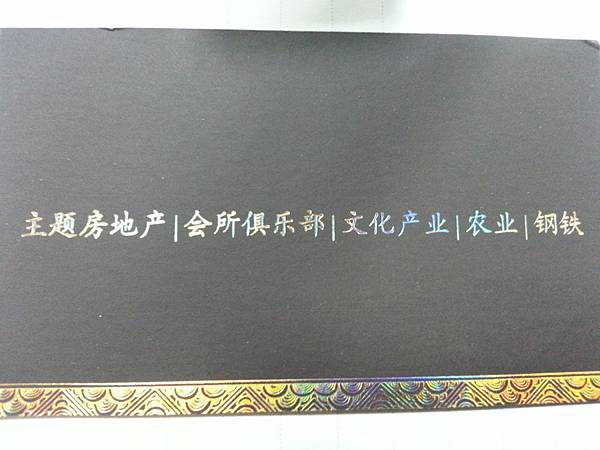 主题房地产|会所俱乐部|文化产业|农业|钢铁